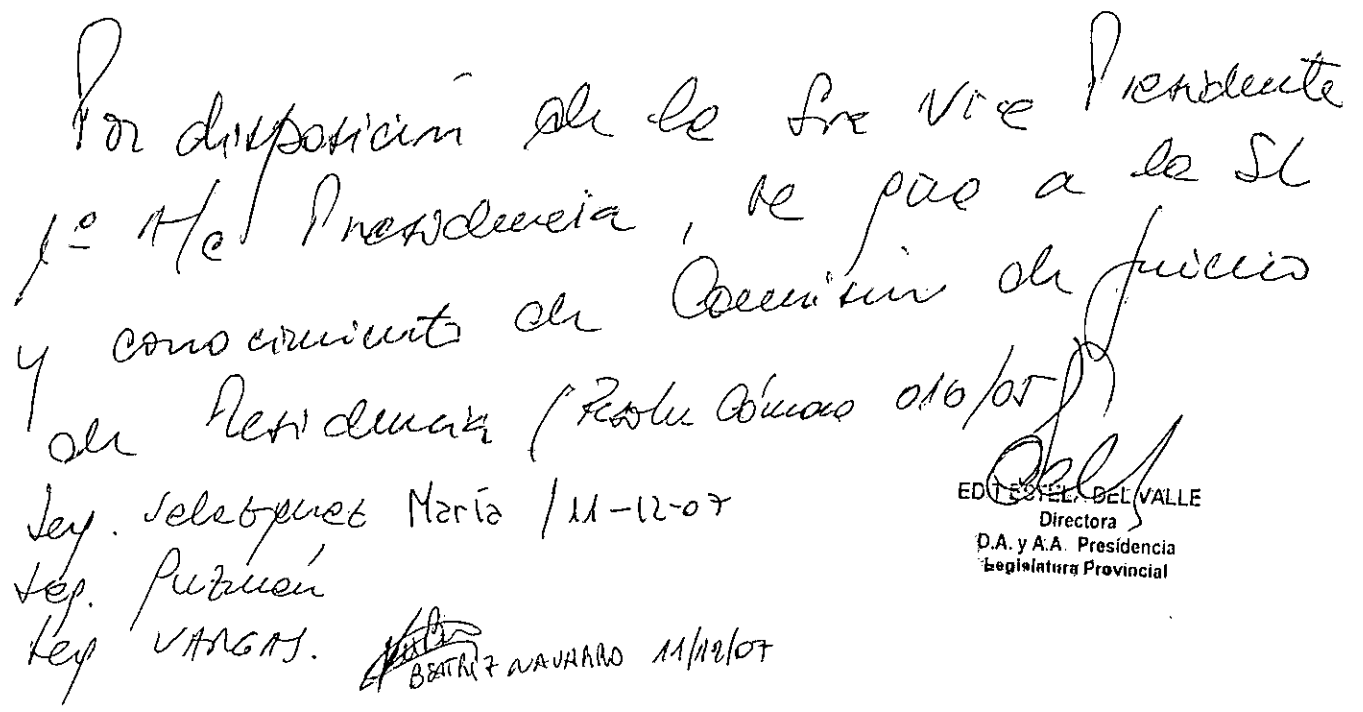 Por disposición de la Sra Vice Presidente
1º A/c Presidencia, se gire a la SL
y conocimiento de Comisión de Juicio
de Residencia (Resolu Cámara 010/05)
Leg. Velazquez María / 11-12-07
Leg. Guzmán
Leg VARGAS.
BEATRIZ NAVARRO 11/12/07
EDIT ESTELA DEL VALLE
Directora
D.A. y A.A. Presidencia
Legislatura Provincial